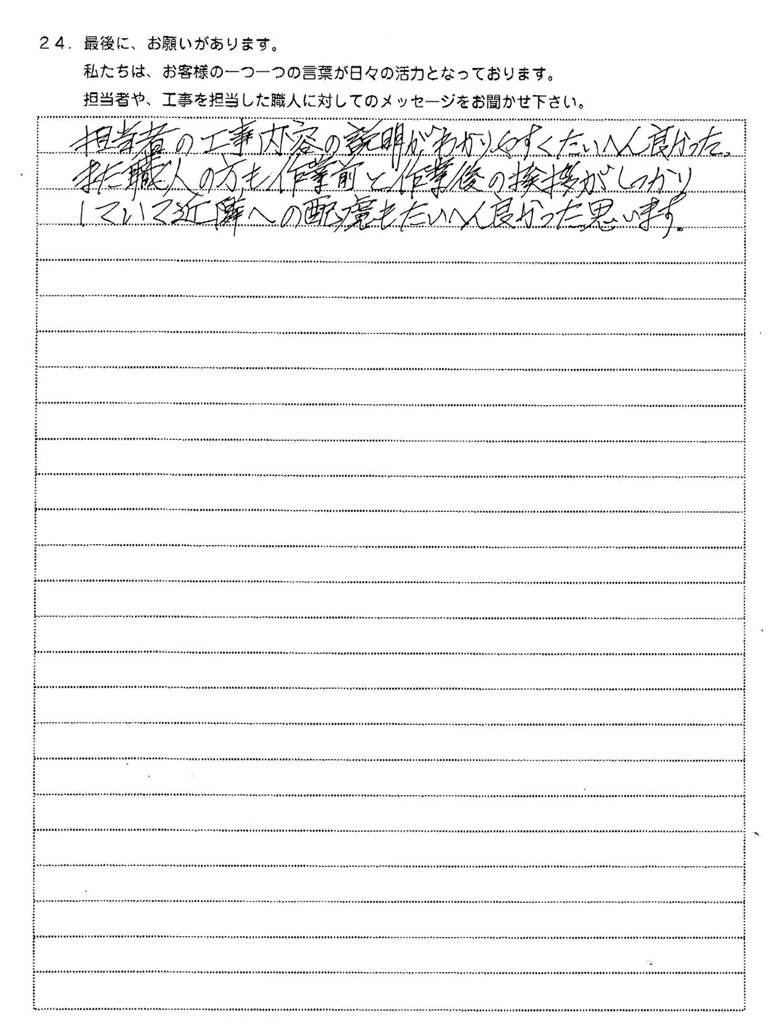 24. 最後に、お願いがあります。
私たちは、お客様の一つ一つの言葉が日々の活力となっております。
担当者や、工事を担当した職人に対してのメッセージをお聞かせ下さい。
担当者の工事内容の説明がわかりやすくたいへん良かった。
また職人の方も作業前と作業後の挨拶がしっかり
していて近隣への配慮もたいへん良かった思います。